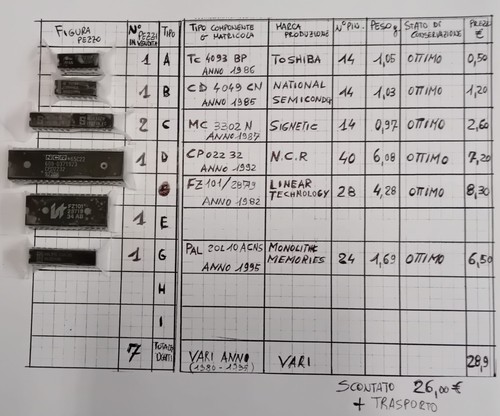 FIGURA PEZZO N° PEZZI IN VENDITA TIPO TIPO COMPONENTE O MATRICOLA MARCA PRODUZIONE N° PIG. PESO g STATO DI CONSERVAZIONE PREZZI €
1 A TC 4093 BP ANNO 1986 TOSHIBA 14 1,05 OTTIMO 0,50
1 B CD 4049 CN ANNO 1985 NATIONAL SEMICONDG 14 1,03 OTTIMO 1,20
2 C MC 3302 N ANNO 1987 SIGNETIC 14 0,97 OTTIMO 2,60
1 D CP02232 ANNO 1992 N.C.R 40 6,08 OTTIMO 7,20
FZ101/2879 ANNO 1982 LINEAR TECHNOLOGY 28 4,28 OTTIMO 8,30
1 E
1 G PAL 20L10ACNS ANNO 1995 MONOLITHC MEMORIES 24 1,69 OTTIMO 6,50
H
I
7 VARI ANNO VARI 28,9
SCONTATO 26,00€
+ TRASPORTO